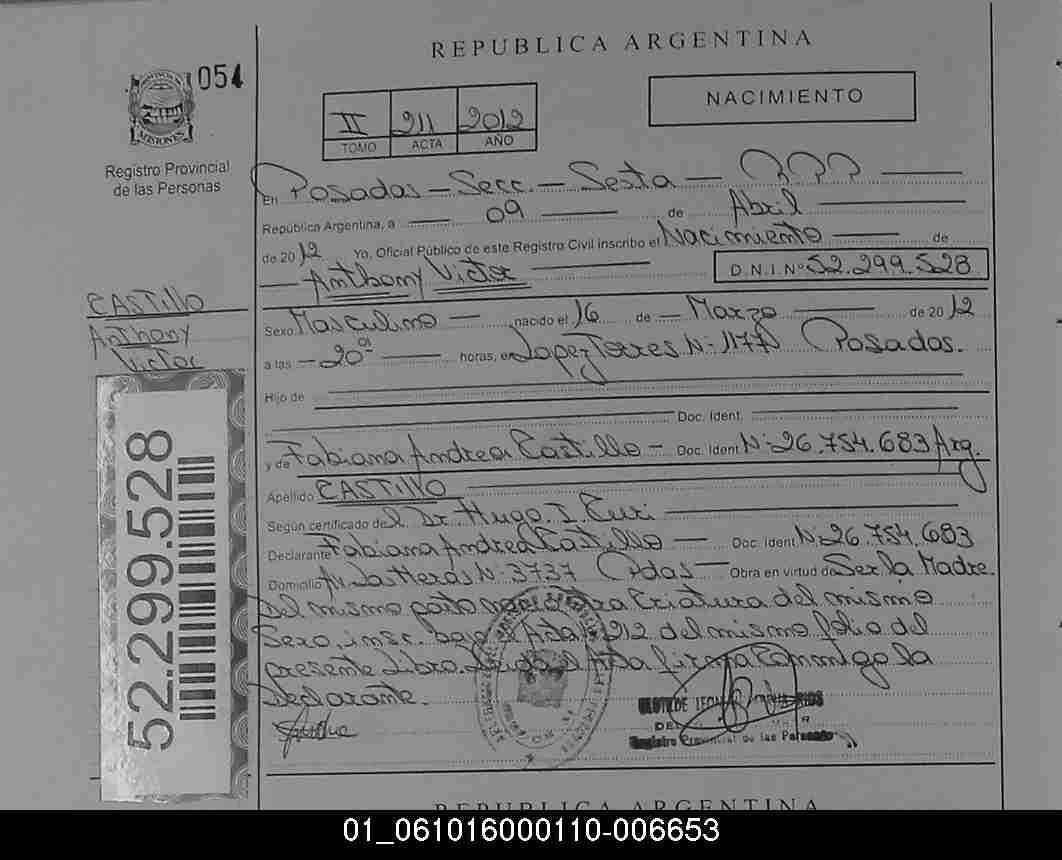 REPUBLICA ARGENTINA
054
NACIMIENTO
II 211 2012
TOMO ACTA AÑO
MISIONES
Registro Provincial
de las Personas
En Posadas - Secc. - Sesta -
República Argentina, a 09 de Abril
de 2012 Yo, Oficial Público de este Registro Civil inscribo el Nacimiento de
Anthony Victor D.N.I. Nº 52.299.528
CASTILLO
Anthony
Victor
Sexo Masculino - nacido el 16 de - Marzo de 2012
a las - 20 horas, en Lopez Torres Nº 1177 Posadas.
Hijo de
Doc. Ident.
y de Fabiana Andrea Castillo - Doc. Ident Nº 26.754.683 Arg.
Apellido CASTILLO
Según certificado del Dr. Hugo. I.
Declarante Fabiana Andrea Castillo - Doc. Ident Nº 26.754.683
Domicilio Av. Las Heras Nº 3737 Pdas - Obra en virtud de Ser la Madre.
Del mismo parto nació otra Criatura del mismo
Sexo, inscr. bajo el Acta 212 del mismo folio del
presente Libro. Leida el Acta firma Conmigo la
Declarante.
52.299.528
Registro Provincial de las Personas
REPUBLICA ARGENTINA
01_061016000110-006653